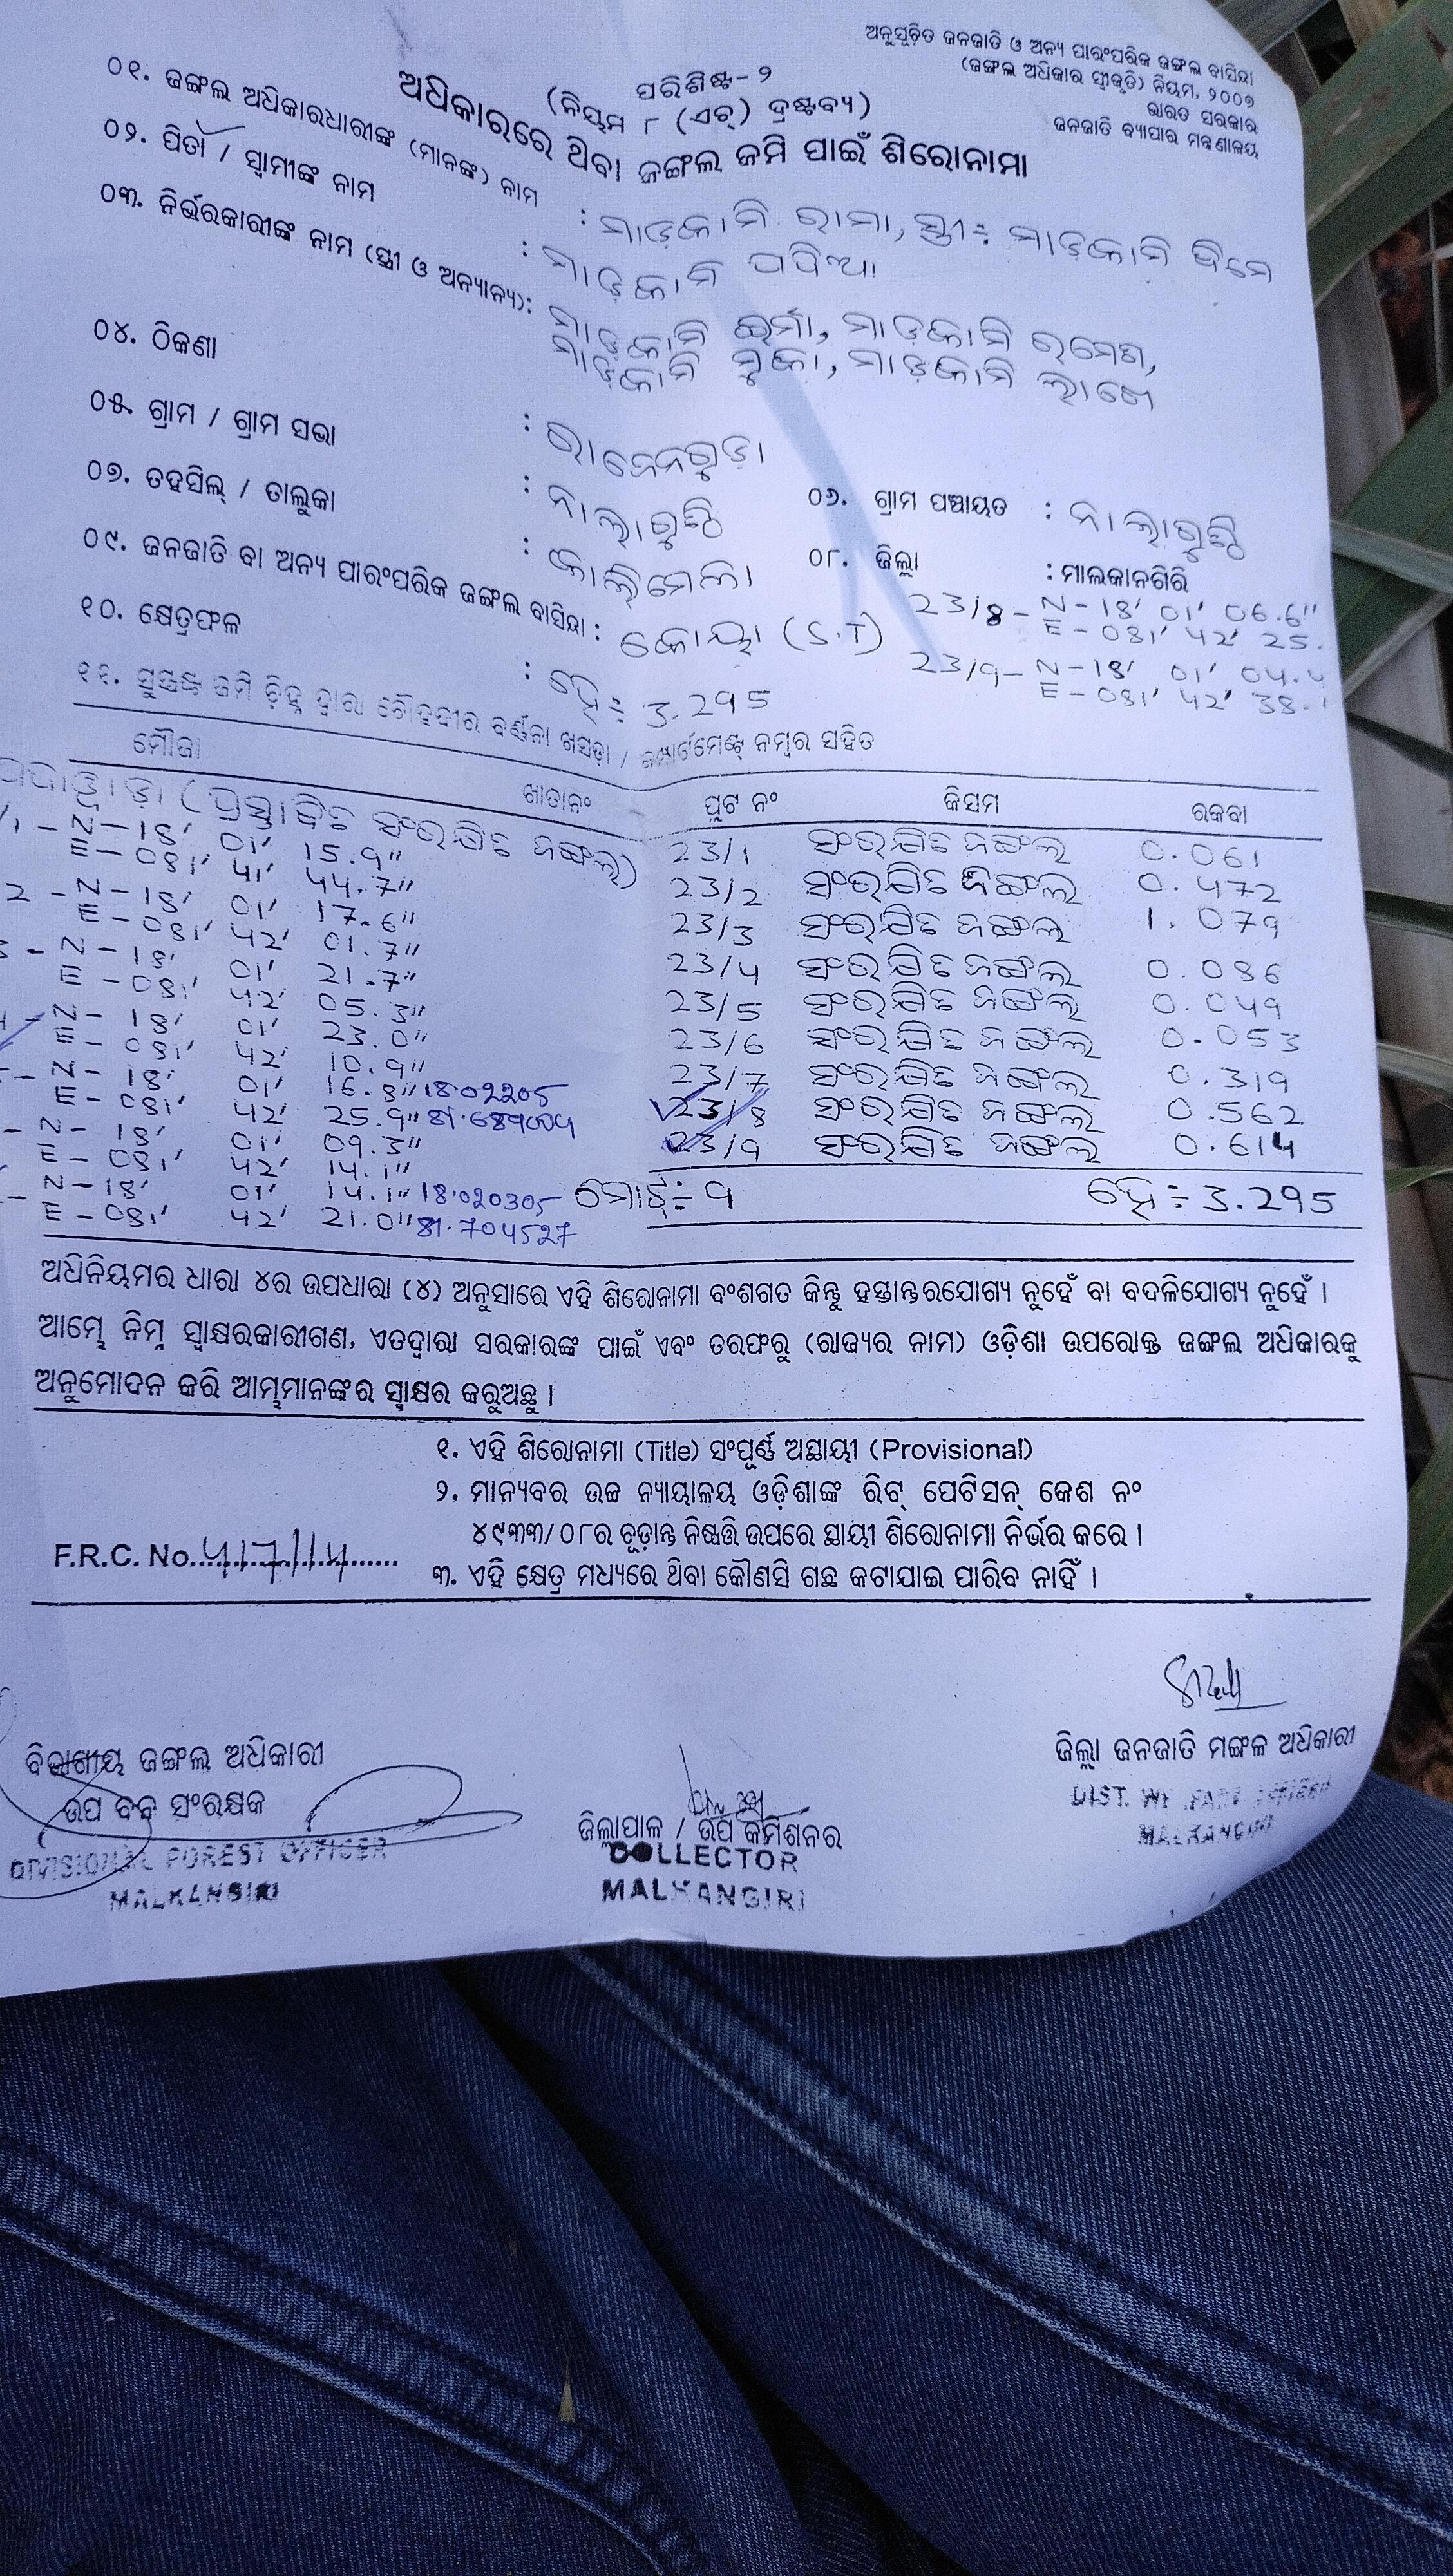 ଅନୁସୂଚିତ ଜନଜାତି ଓ ଅନ୍ୟ ପାରଂପରିକ ଜଙ୍ଗଲ ବାସିନ୍ଦା
(ଜଙ୍ଗଲ ଅଧିକାର ସ୍ୱୀକୃତି) ନିୟମ, ୨୦୦୭
ଭାରତ ସରକାର
ଜନଜାତି ବ୍ୟାପାର ମନ୍ତ୍ରଣାଳୟ
ପରିଶିଷ୍ଟ-୨
(ନିୟମ ୮ (ଏଚ୍) ଦ୍ରଷ୍ଟବ୍ୟ)
ଅଧିକାରରେ ଥିବା ଜଙ୍ଗଲ ଜମି ପାଇଁ ଶିରୋନାମା
୦୧. ଜଙ୍ଗଲ ଅଧିକାରଧାରୀଙ୍କ (ମାନଙ୍କ) ନାମ : ମାଡ଼କାମି ରାମା, ସ୍ତ୍ରୀ÷ ମାଡ଼କାମି ଦିମେ
୦୨. ପିତା / ସ୍ୱାମୀଙ୍କ ନାମ : ମାଡ଼କାମି
୦୩. ନିର୍ଭରକାରୀଙ୍କ ନାମ (ସ୍ତ୍ରୀ ଓ ଅନ୍ୟାନ୍ୟ): ମାଡ଼କାମି ଇର୍ମା, ମାଡ଼କାମି ରମେଶ,
ମାଡ଼କାମି ମୁକା, ମାଡ଼କାମି
୦୪. ଠିକଣା :
୦୫. ଗ୍ରାମ / ଗ୍ରାମ ସଭା : ନାଲାଗୁଣ୍ଠି ୦୬. ଗ୍ରାମ ପଞ୍ଚାୟତ : ନାଲାଗୁଣ୍ଠି
୦୭. ତହସିଲ୍ / ତାଲୁକା : କାଲିମେଲା ୦୮. ଜିଲ୍ଲା : ମାଲକାନଗିରି
୦୯. ଜନଜାତି ବା ଅନ୍ୟ ପାରଂପରିକ ଜଙ୍ଗଲ ବାସିନ୍ଦା : କୋୟା (S.T)
23/8 - N-18' 01' 06.6''
E-081' 42' 25.
23/9 - N-18' 01' 04.4
E-081' 42' 38.
୧୦. କ୍ଷେତ୍ରଫଳ : ହେ÷ 3.295
୧୧. ସୁସ୍ପଷ୍ଟ ଜମି ଚିହ୍ନ ଦ୍ୱାରା ଚୌହଦୀର ବର୍ଣ୍ଣନା ଖସଡ଼ା / କମ୍ପାର୍ଟମେଣ୍ଟ ନମ୍ବର ସହିତ
ମୌଜା ଖାତାନଂ ପ୍ଲଟ ନଂ କିସମ ରକବା
(ପ୍ରସ୍ତାବିତ ସଂରକ୍ଷିତ ଜଙ୍ଗଲ)
1 - N-18' 01' 15.9''
E-081' 41' 44.7''
2 - N-18' 01' 17.6''
E-081' 42' 01.7''
3 - N-18' 01' 21.7''
E-081' 42' 05.3''
4 - N-18' 01' 23.0''
E-081' 42' 10.9''
- N-18' 01' 16.8'' 18.02205
E-081' 42' 25.9''
- N-18' 01' 09.3''
E-081' 42' 14.1''
- N-18' 01' 14.1'' 18.020305
E-081' 42' 21.0'' 81.704527
23/1 ସଂରକ୍ଷିତ ଜଙ୍ଗଲ 0.061
23/2 ସଂରକ୍ଷିତ ଜଙ୍ଗଲ 0.472
23/3 ସଂରକ୍ଷିତ ଜଙ୍ଗଲ 1.079
23/4 ସଂରକ୍ଷିତ ଜଙ୍ଗଲ 0.086
23/5 ସଂରକ୍ଷିତ ଜଙ୍ଗଲ 0.049
23/6 ସଂରକ୍ଷିତ ଜଙ୍ଗଲ 0.053
23/7 ସଂରକ୍ଷିତ ଜଙ୍ଗଲ 0.319
23/8 ସଂରକ୍ଷିତ ଜଙ୍ଗଲ 0.562
23/9 ସଂରକ୍ଷିତ ଜଙ୍ଗଲ 0.614
ମୋଟ÷ 9 ହେ÷ 3.295
ଅଧିନିୟମର ଧାରା ୪ର ଉପଧାରା (୪) ଅନୁସାରେ ଏହି ଶିରୋନାମା ବଂଶଗତ କିନ୍ତୁ ହସ୍ତାନ୍ତରଯୋଗ୍ୟ ନୁହେଁ ବା ବଦଳିଯୋଗ୍ୟ ନୁହେଁ ।
ଆମ୍ଭେ ନିମ୍ନ ସ୍ୱାକ୍ଷରକାରୀଗଣ, ଏତଦ୍ୱାରା ସରକାରଙ୍କ ପାଇଁ ଏବଂ ତରଫରୁ (ରାଜ୍ୟର ନାମ) ଓଡ଼ିଶା ଉପରୋକ୍ତ ଜଙ୍ଗଲ ଅଧିକାରକୁ
ଅନୁମୋଦନ କରି ଆମ୍ଭମାନଙ୍କର ସ୍ୱାକ୍ଷର କରୁଅଛୁ ।
୧. ଏହି ଶିରୋନାମା (Title) ସଂପୂର୍ଣ୍ଣ ଅସ୍ଥାୟୀ (Provisional)
୨. ମାନ୍ୟବର ଉଚ୍ଚ ନ୍ୟାୟାଳୟ ଓଡ଼ିଶାଙ୍କ ରିଟ୍ ପେଟିସନ୍ କେଶ ନଂ
୪୯୩୩/୦୮ର ଚୂଡ଼ାନ୍ତ ନିଷ୍ପତ୍ତି ଉପରେ ସ୍ଥାୟୀ ଶିରୋନାମା ନିର୍ଭର କରେ ।
F.R.C. No. 417/14
୩. ଏହି କ୍ଷେତ୍ର ମଧ୍ୟରେ ଥିବା କୌଣସି ଗଛ କଟାଯାଇ ପାରିବ ନାହିଁ ।
ବିଭାଗୀୟ ଜଙ୍ଗଲ ଅଧିକାରୀ
ଉପ ବନ ସଂରକ୍ଷକ
DIVISIONAL FOREST OFFICER
MALKANGIRI
ଜିଲ୍ଲାପାଳ / ଉପ କମିଶନର
COLLECTOR
MALKANGIRI
ଜିଲ୍ଲା ଜନଜାତି ମଙ୍ଗଳ ଅଧିକାରୀ
DIST. WELFARE OFFICER
MALKANGIRI